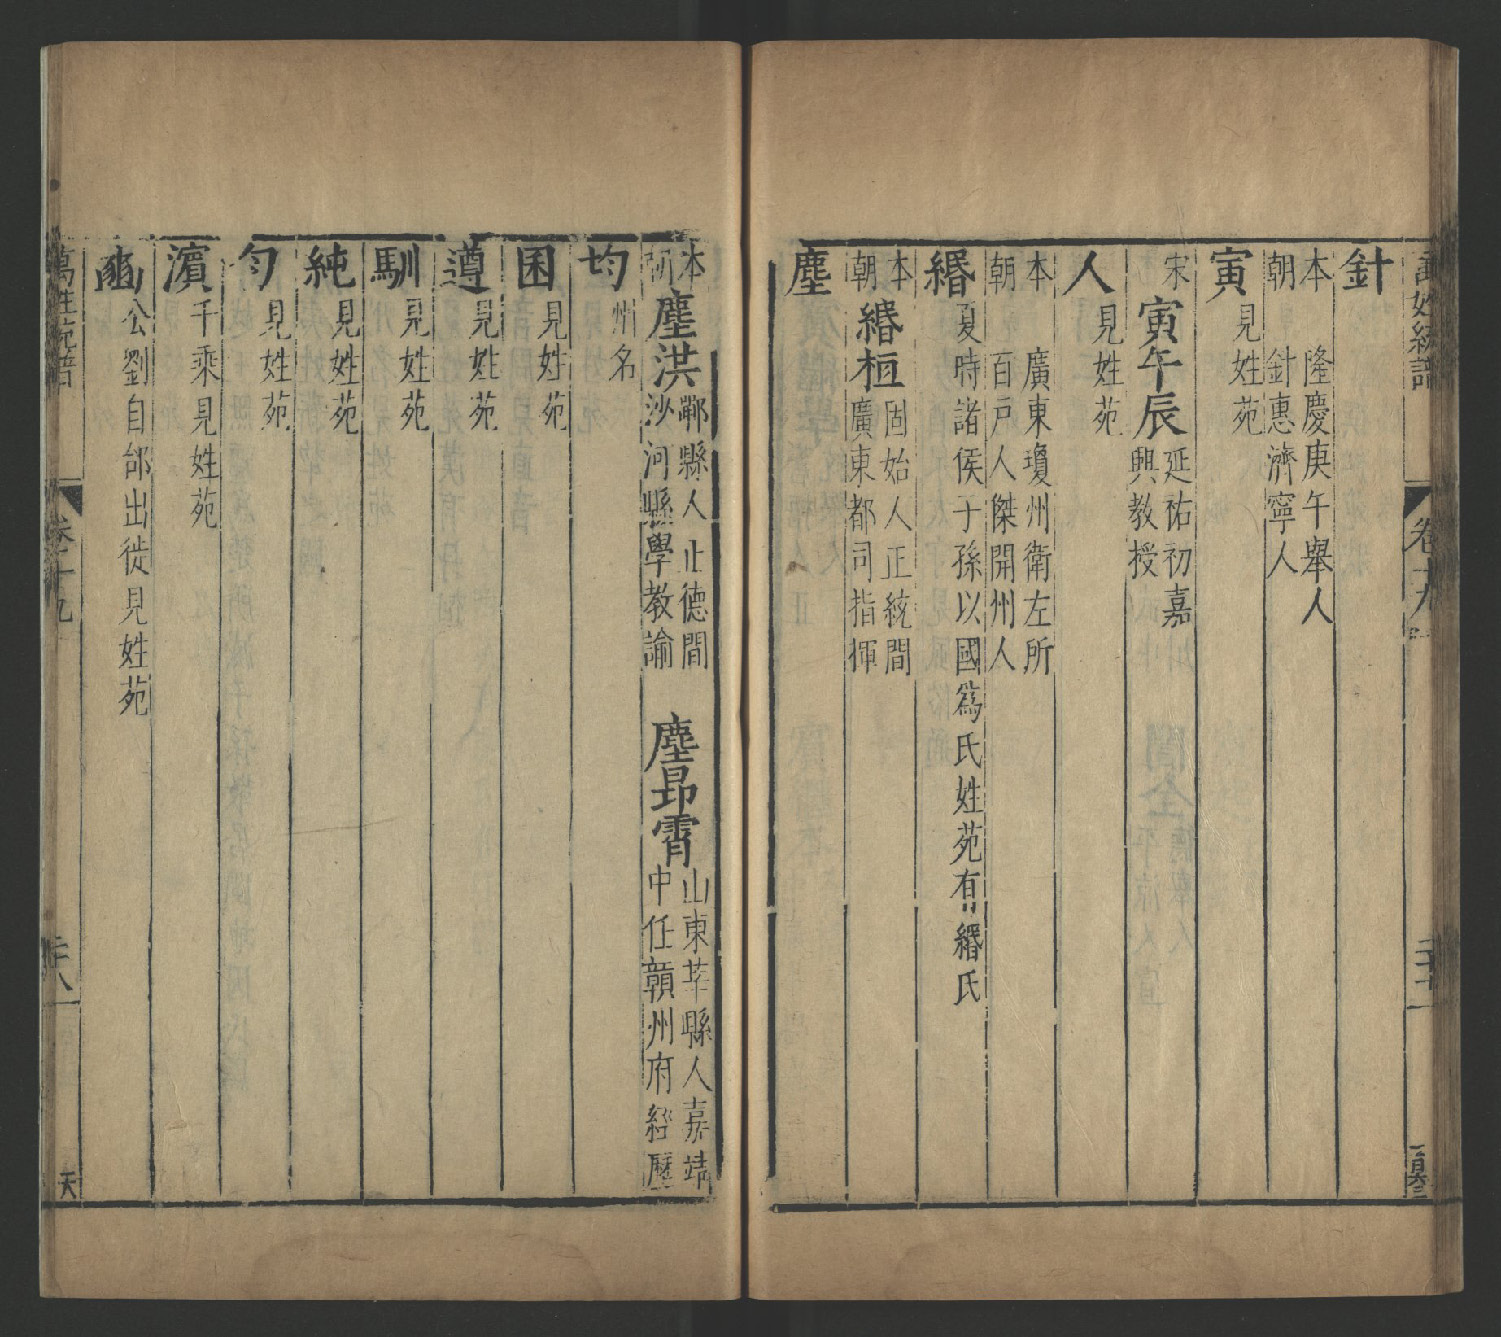 萬姓統譜 卷十九
針
本朝 針惠濟寧人 隆慶庚午舉人
寅 見姓苑
宋 寅午辰 延祐初嘉興教授
人 見姓苑
本朝 人傑開州人 廣東瓊州衛左所百戶
緡 夏時諸侯子孫以國爲氏姓苑有緡氏
本朝 緡桓 固始人正統間廣東都司指揮
塵
本朝 塵洪 鄆縣人正德間沙河縣學教諭 塵昴霄 山東莘縣人嘉靖中任贛州府經歷
均 州名
囷 見姓苑
遵 見姓苑
馴 見姓苑
純 見姓苑
勻 見姓苑
濵 千乘見姓苑
豳 公劉自邰出徙見姓苑
萬姓統譜 卷十九 二十八 天